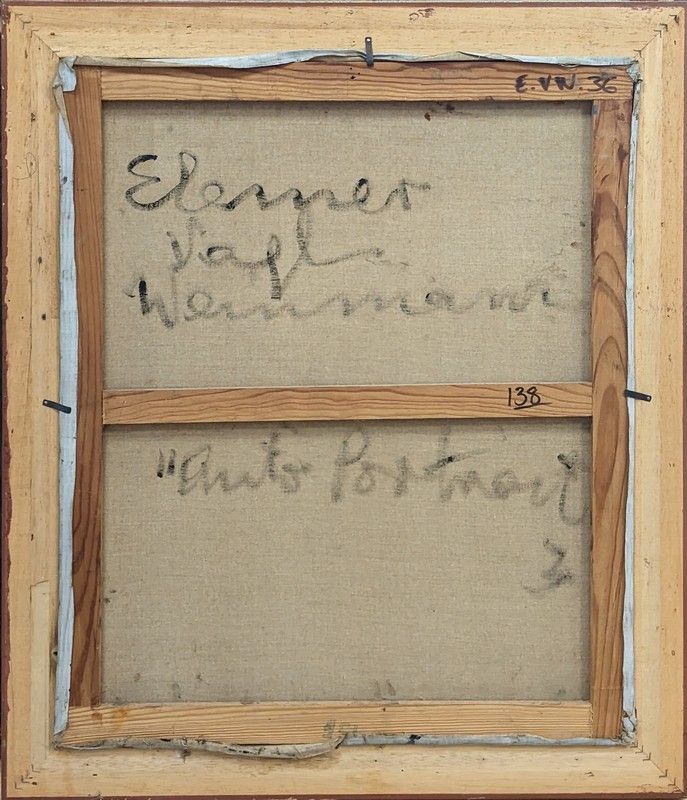 E.VW.36
Elemer
Vagh
Weinmann
138
"Auto Portrait
3